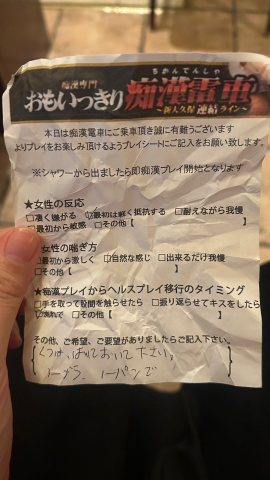 痴漢専門
ちかんでんしゃ
おもいっきり痴漢電車
～新大久保連結ライン～
本日は痴漢電車にご乗車頂き誠に有難うございます
よりプレイをお楽しみ頂けるようプレイシートにご記入をお願い致します。
※シャワーから出ましたら即痴漢プレイ開始となります
★女性の反応
□凄く嫌がる ☑最初は軽く抵抗する □耐えながら我慢
最初から敏感 □その他【 】
女性の喘ぎ方
□最初から激しく ☑自然な感じ □出来るだけ我慢
□その他【 】
★痴漢プレイからヘルスプレイ移行のタイミング
□手を取って股間を触らせたら □振り返らせてキスをしたら
で □その他【 】
その他、ご希望、ご要望がありましたらご記入下さい。
くつは、はいておいて下さい。
ノーブラ ノーパンで